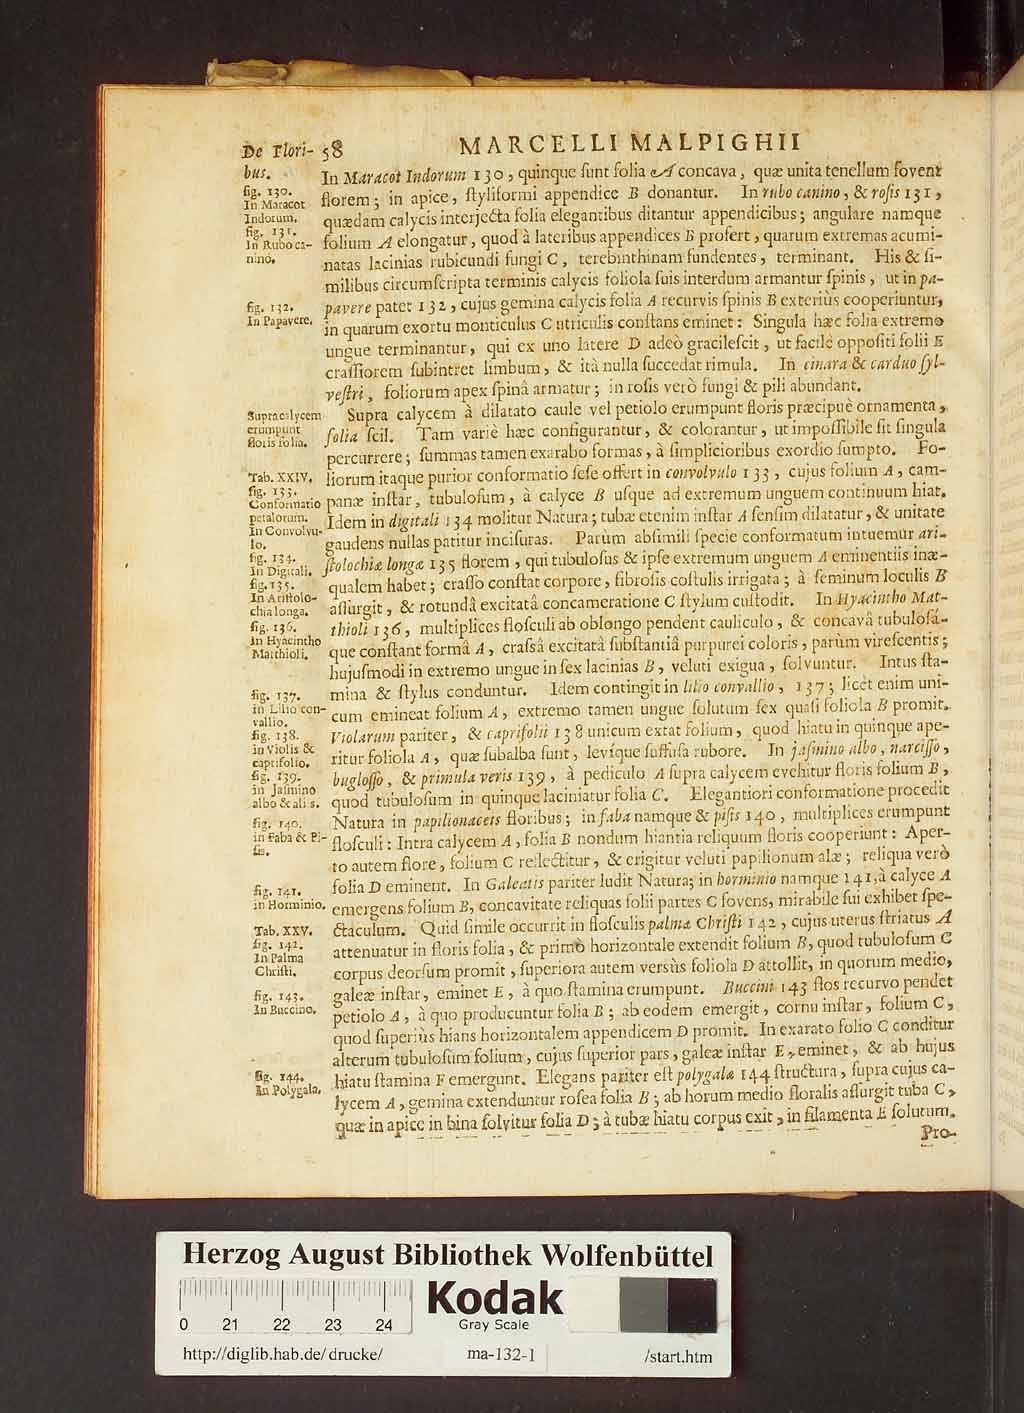 De Flori- 58 MARCELLI MALPIGHII
bus.
In Maracot Indorum 130, quinque ſunt folia A concava, quæ unita tenellum fovent
fig. 130.
In Maracot
Indorum.
fig. 131.
In Rubo ca-
nino.
florem; in apice, ſtyliformi appendice B donantur. In rubo canino, & roſis 131,
quædam calycis interjecta folia elegantibus ditantur appendicibus; angulare namque
folium A elongatur, quod à lateribus appendices B profert, quarum extremas acumi-
natas lacinias rubicundi fungi C, terebinthinam fundentes, terminant. His & ſi-
milibus circumſcripta terminis calycis foliola ſuis interdum armantur ſpinis, ut in pa-
fig. 132.
In Papavere.
pavere patet 132, cujus gemina calycis folia A recurvis ſpinis B exteriùs cooperiuntur,
in quarum exortu monticulus C utriculis conſtans eminet: Singula hæc folia extremo
ungue terminantur, qui ex uno latere D adeò gracileſcit, ut facilè oppoſiti folii E
craſſiorem ſubintret limbum, & ità nulla ſuccedat rimula. In cinara & carduo ſyl-
veſtri, foliorum apex ſpinâ armatur; in roſis verò fungi & pili abundant.
Supra calycem
erumpunt
floris folia.
Supra calycem à dilatato caule vel petiolo erumpunt floris præcipuè ornamenta,
folia ſcil. Tam variè hæc configurantur, & colorantur, ut impoſſibile ſit ſingula
percurrere; ſummas tamen exarabo formas, à ſimplicioribus exordio ſumpto. Fo-
Tab. XXIV.
fig. 133.
Conformatio
petalorum.
In Convolvu-
lo.
liorum itaque purior conformatio ſeſe offert in convolvulo 133, cujus folium A, cam-
panæ inſtar, tubuloſum, à calyce B uſque ad extremum unguem continuum hiat.
Idem in digitali 134 molitur Natura; tubæ etenim inſtar A ſenſim dilatatur, & unitate
gaudens nullas patitur inciſuras. Parùm abſimili ſpecie conformatum intuemur ari-
fig. 134.
In Digitali.
fig. 135.
In Ariſtolo-
chia longa.
ſtolochiæ longæ 135 florem, qui tubuloſus & ipſe extremum unguem A eminentiis inæ-
qualem habet; craſſo conſtat corpore, fibroſis coſtulis irrigata; à ſeminum loculis B
aſſurgit, & rotundâ excitatâ concameratione C ſtylum cuſtodit. In Hyacintho Mat-
fig. 136.
In Hyacintho
Matthioli.
thioli 136, multiplices floſculi ab oblongo pendent cauliculo, & concavâ tubuloſâ-
que conſtant formâ A, craſsâ excitatâ ſubſtantiâ purpurei coloris, parùm vireſcentis;
hujuſmodi in extremo ungue in ſex lacinias B, veluti exigua, ſolvuntur. Intus ſta-
fig. 137.
in Lilio con-
vallio.
mina & ſtylus conduntur. Idem contingit in lilio convallio, 137; licèt enim uni-
cum emineat folium A, extremo tamen ungue ſolutum ſex quaſi foliola B promit.
fig. 138.
in Violis &
caprifolio.
Violarum pariter, & caprifolii 138 unicum extat folium, quod hiatu in quinque ape-
ritur foliola A, quæ ſubalba ſunt, levíque ſuffuſa rubore. In jaſmino albo, narciſſo,
fig. 139.
in Jaſmino
albo & aliis.
bugloſſo, & primula veris 139, à pediculo A ſupra calycem evehitur floris folium B,
quod tubuloſum in quinque laciniatur folia C. Elegantiori conformatione procedit
fig. 140.
in Faba & Pi-
ſis.
Natura in papilionaceis floribus; in faba namque & piſis 140, multiplices erumpunt
floſculi: Intra calycem A, folia B nondum hiantia reliquum floris cooperiunt: Aper-
to autem flore, folium C reflectitur, & erigitur veluti papilionum alæ; reliqua verò
fig. 141.
in Horminio.
folia D eminent. In Galeatis pariter ludit Natura; in horminio namque 141, à calyce A
emergens folium B, concavitate reliquas folii partes C fovens, mirabile ſui exhibet ſpe-
Tab. XXV.
fig. 142.
In Palma
Chriſti.
ctaculum. Quid ſimile occurrit in floſculis palmæ Chriſti 142, cujus uterus ſtriatus A
attenuatur in floris folia, & primò horizontale extendit folium B, quod tubuloſum C
corpus deorſum promit, ſuperiora autem versùs foliola D attollit, in quorum medio,
fig. 143.
In Buccino.
galeæ inſtar, eminet E, à quo ſtamina erumpunt. Buccini 143 flos recurvo pendet
petiolo A, à quo producuntur folia B; ab eodem emergit, cornu inſtar, folium C,
quod ſuperiùs hians horizontalem appendicem D promit. In exarato folio C conditur
alterum tubuloſum folium, cujus ſuperior pars, galeæ inſtar E, eminet, & ab hujus
fig. 144.
In Polygala.
hiatu ſtamina F emergunt. Elegans pariter eſt polygalæ 144 ſtructura, ſupra cujus ca-
lycem A, gemina extenduntur roſea folia B; ab horum medio floralis aſſurgit tuba C,
quæ in apice in bina ſolvitur folia D; à tubæ hiatu corpus exit, in filamenta E ſolutum.
Pro-
Herzog August Bibliothek Wolfenbüttel
Kodak
Gray Scale
0 21 22 23 24
http://diglib.hab.de/drucke/ ma-132-1 /start.htm